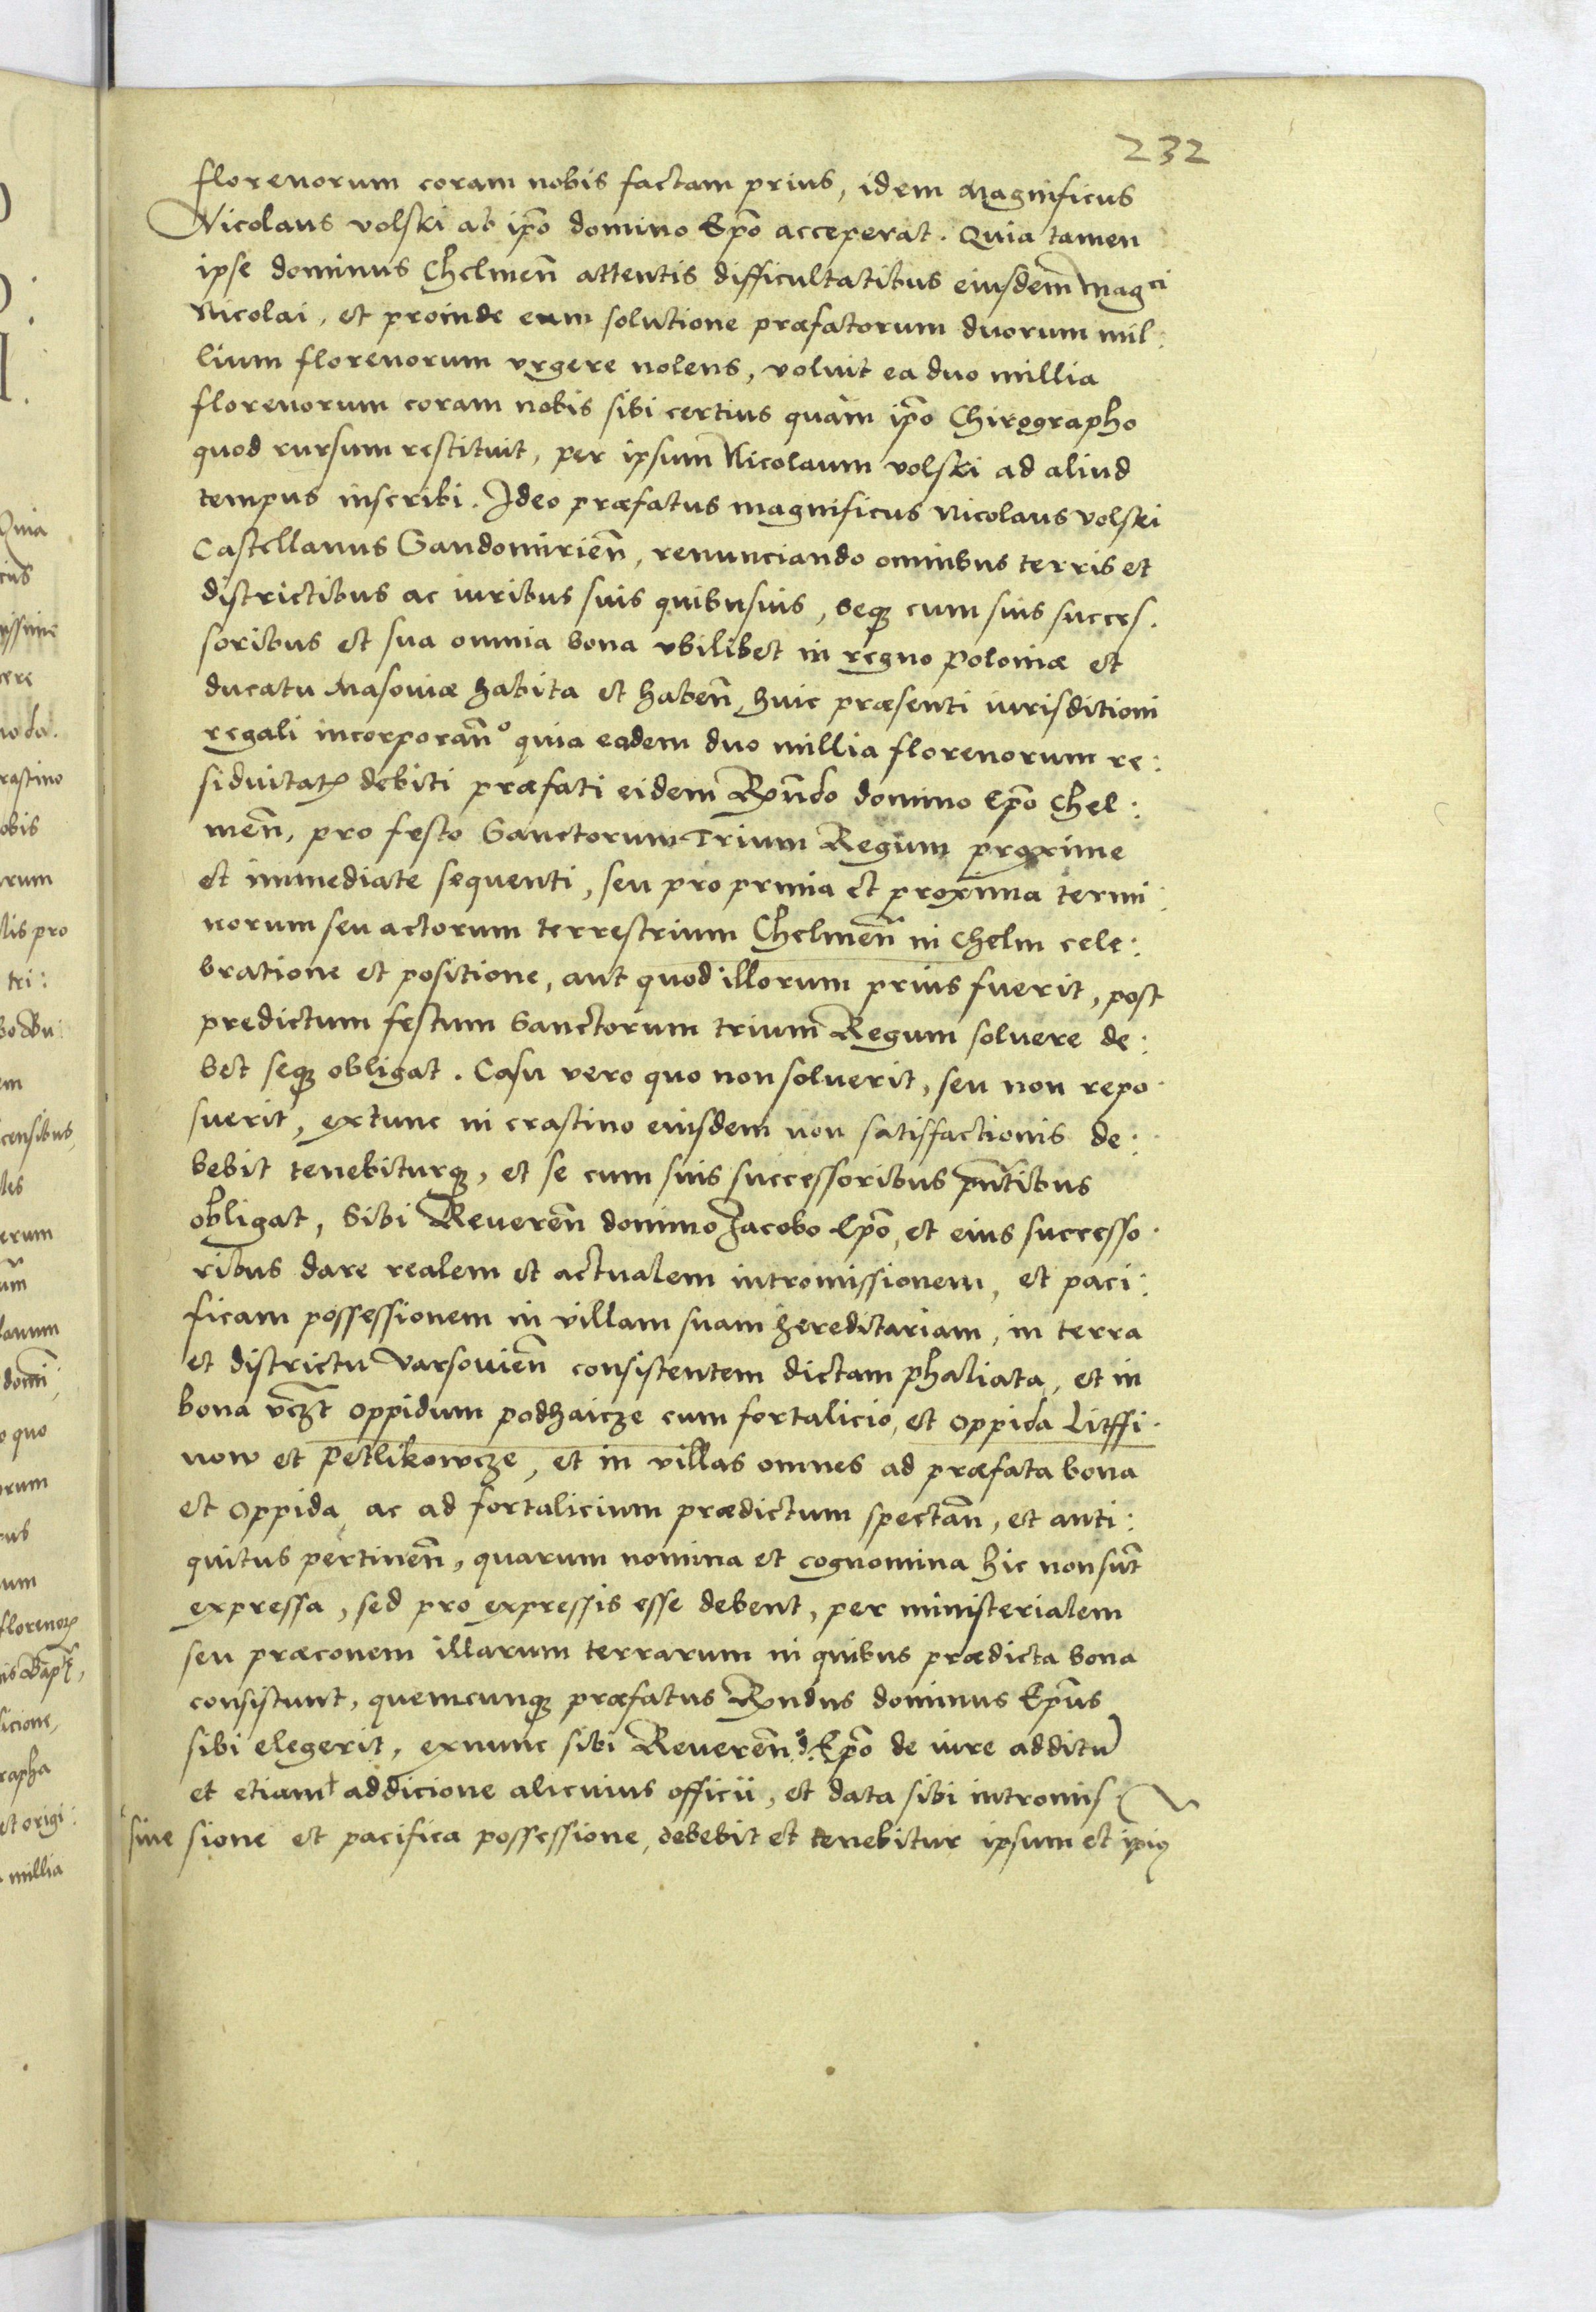 232
florenorum coram nobis factam prius, idem Magnificus
Nicolaus volski ab ip̃o domino Ep̃o acceperat. Quia tamen
ipse dominus Chelmeñ attentis difficultatibus eiusdem mag^ci
Nicolai, et proinde eum solutione præfatorum duorum mil:
lium florenorum vrgere nolens, voluit ea duo millia
florenorum coram nobis sibi certius quàm ip̃o Chirographo
quod rursum restituit, per ipsum Nicolaum volski ad aliud
tempus inscribi. Ideo præfatus magnificus Nicolaus volski
Castellanus Sandomirieñ, renunciando omnibus terris et
districtibus ac iuribus suis quibusuis, seq3 cum suis succes.
soribus et sua omnia bona vbilibet in regno Poloniæ et
ducatu Masoviæ habita et habeñ, huic præsenti iurisditioni
regali incorporañ° quia eadem duo millia florenorum re:
siduitatis debiti præfati eidem Rñdo domino Ep̃o Chel:
meñ, pro festo Sanctorum Trium Regum proxime
et immediate sequenti, seu pro prima et proxima termi:
norum seu actorum terrestrium Chelmeñ in Chelm cele:
bratione et positione, aut quod illorum prius fuerit, post
predictum festum Sanctorum trium Regum soluere de:
bet seq3 obligat. Casu vero quo non soluerit, seu non repo.
suerit, extunc in crastino eiusdem non satisfactionis de:
bebit tenebiturq3, et se cum suis successoribus pñtibus
obligat, Sibi Revereñ domino Jacobo Ep̃o, et eius successo.
ribus dare realem et actualem intromissionem, et paci:
ficam possessionem in villam suam hereditariam, in terra
et districtu Varsovieñ consistentem dictam phaliata, et in
bona vcz̃t oppidum podhaicze cum fortalicio, et oppida Litffi.
now et Petlikowcze, et in villas omnes ad præfata bona
et oppida ac ad fortalicium prædictum spectañ, et anti:
quitus pertineñ, quarum nomina et cognomina hic non sũt
expressa, sed pro expressis esse debent, per ministerialem
seu præconem illarum terrarum in quibus prædicta bona
consistunt, quemcunq3 præfatus Rñdus dominus Ep̃us
sibi elegerit, exnunc sibi Revereñ d. Ep̃o de iure additũ
et etiam addicione alicuius officii, et data sibi intromis
sine sione et pacifica possessione, debebit et tenebitur ipsum et ipiꝰ